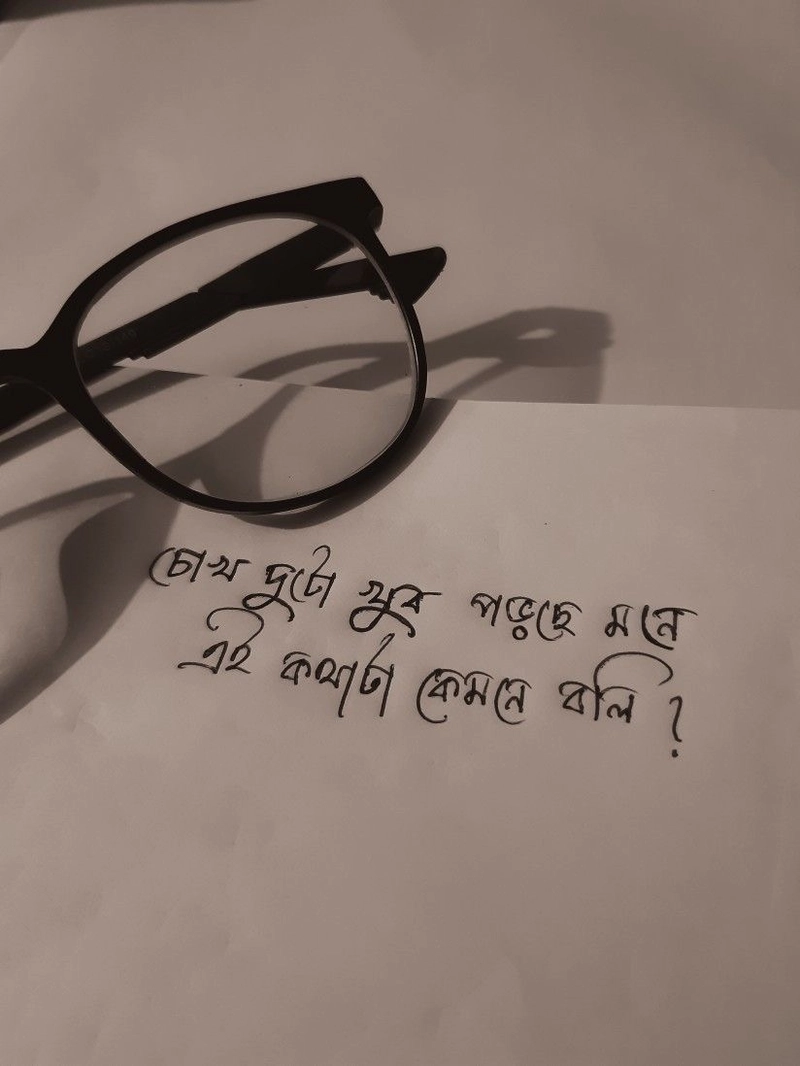 চোখ দুটো খুব পড়ছে মনে
এই কথাটা কেমনে বলি ?